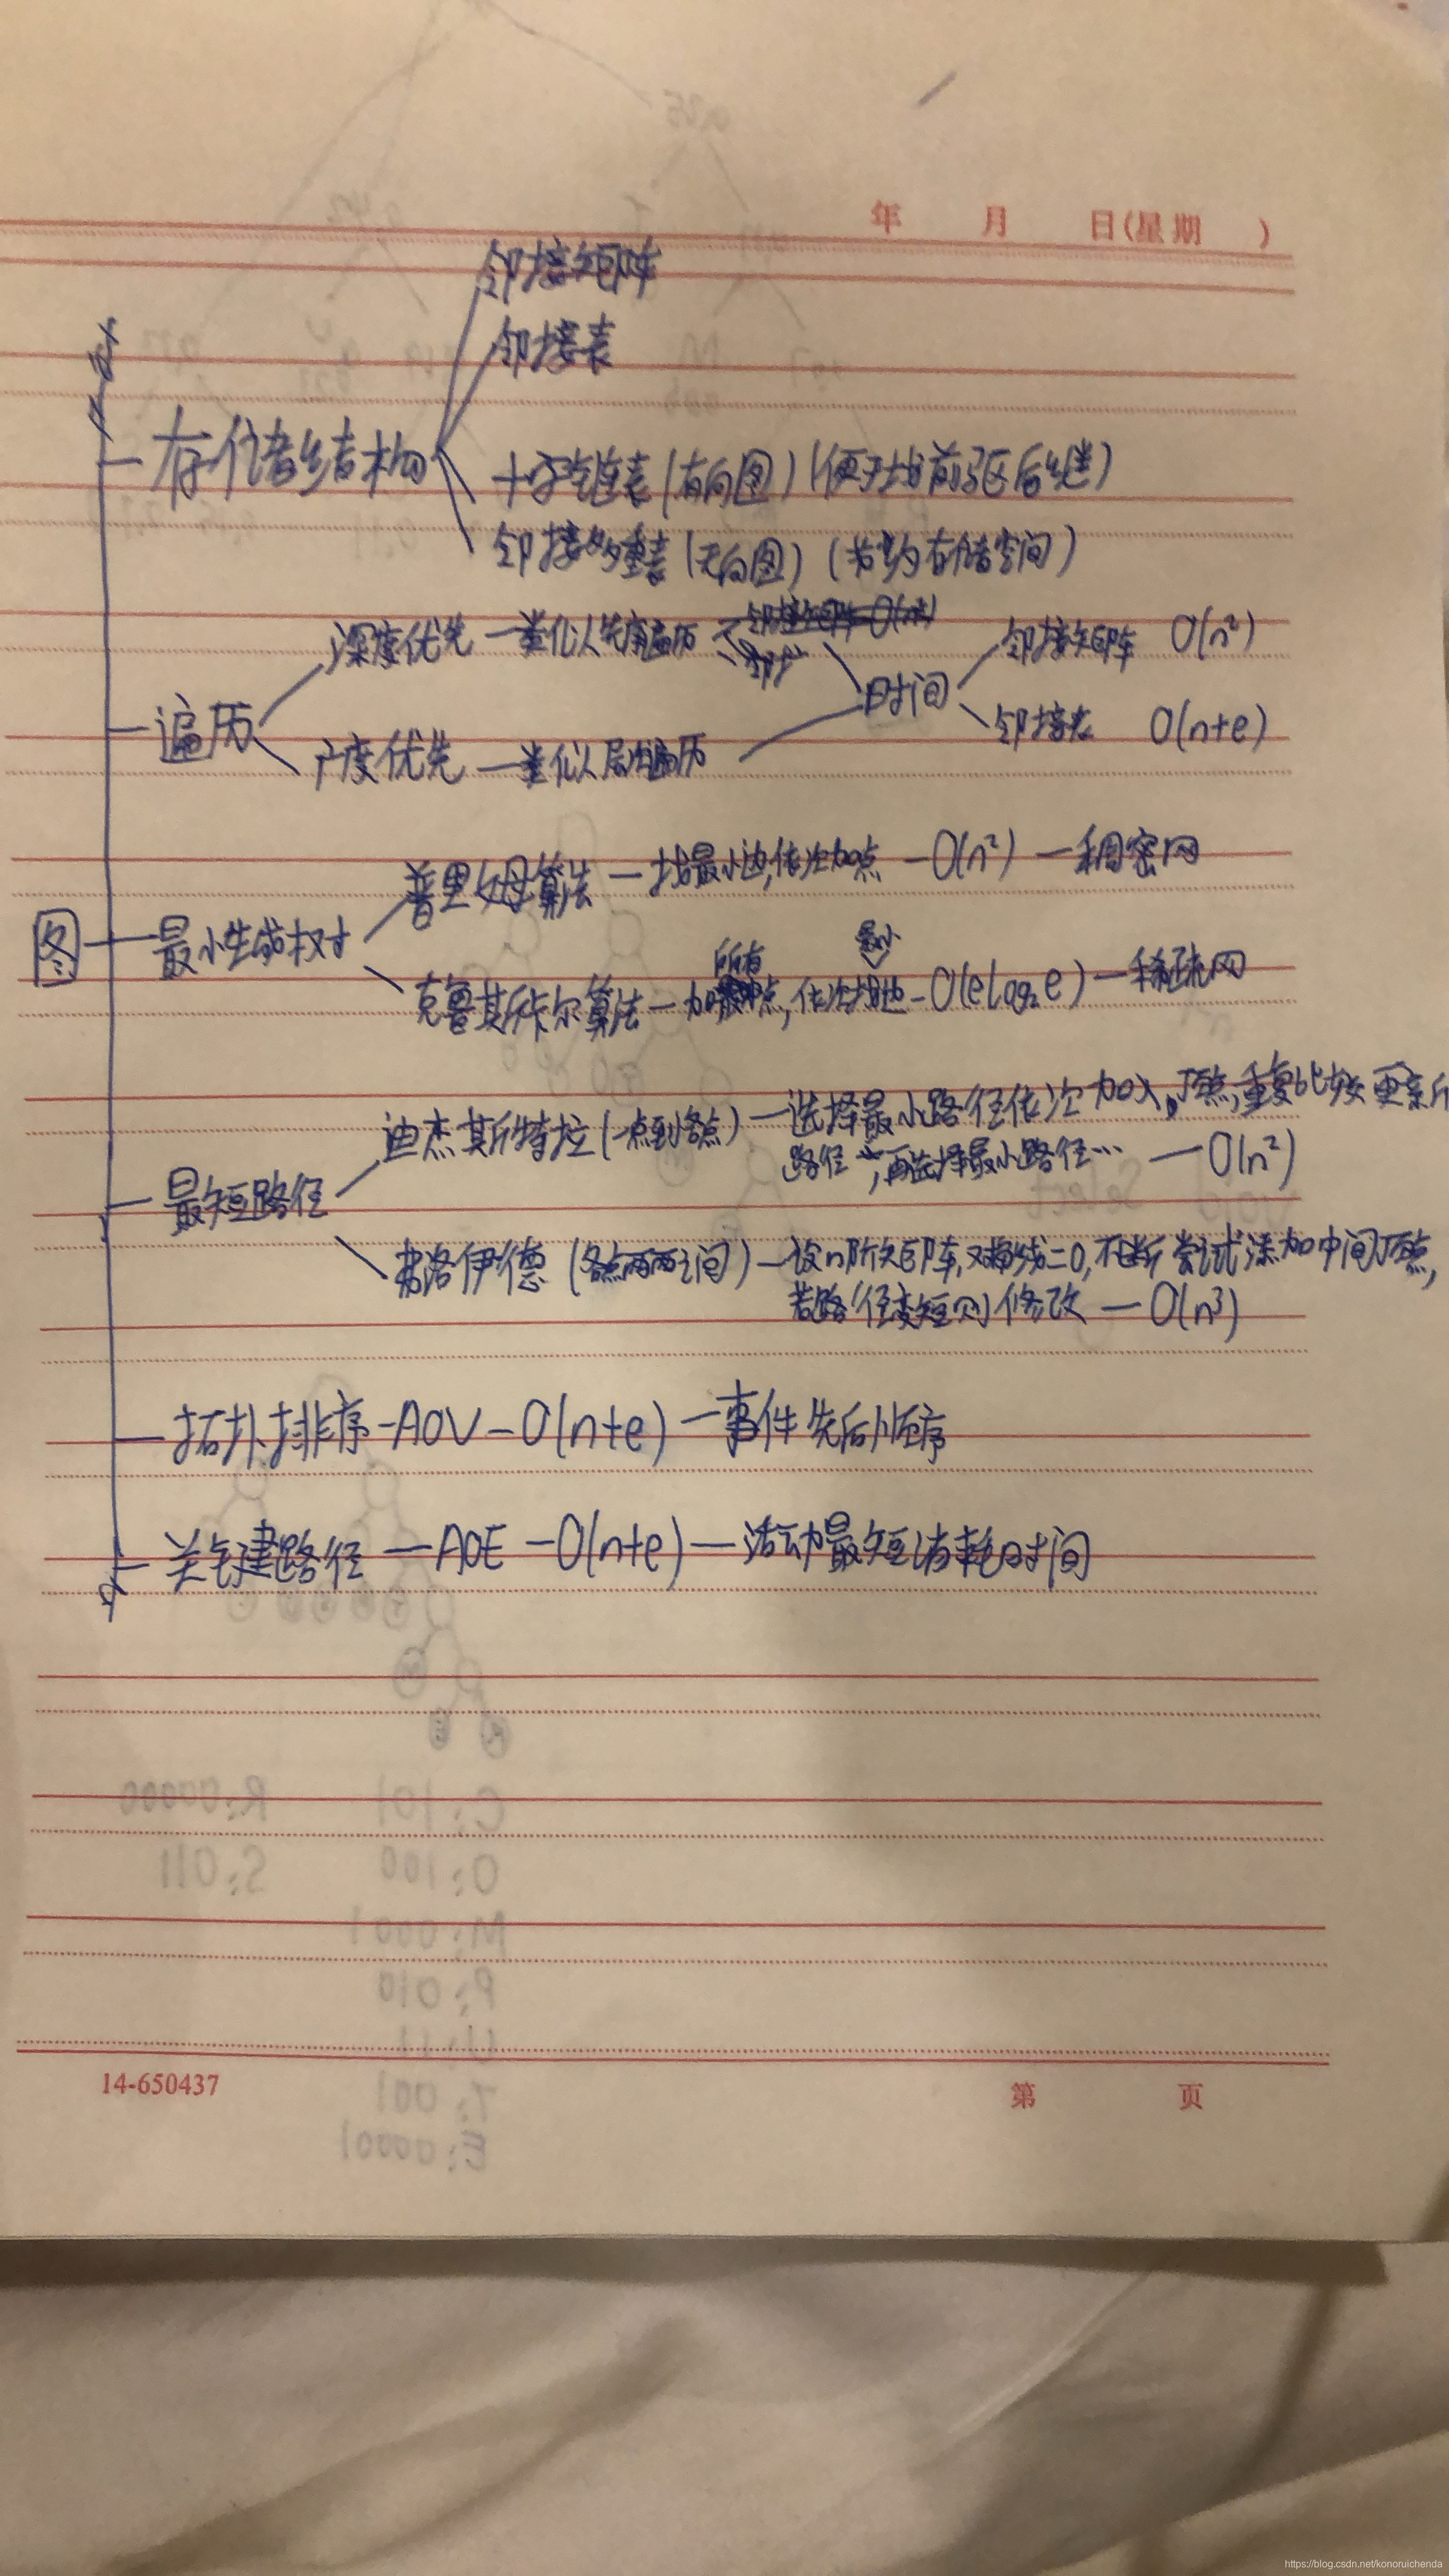 年 月 日(星期 )
邻接矩阵
邻接表
存储结构
十字链表(有向图)(便于找前驱后继)
邻接多重表(无向图)(节约存储空间)
深度优先—类似先序遍历
邻接矩阵 O(n²)
时间
遍历
邻接表 O(n+e)
广度优先—类似层次遍历
普里姆算法—找最小边,依次加点—O(n²)—稠密网
图
最小生成树
所有 最小
克鲁斯卡尔算法—加点,依次增边—O(elog₂e)—稀疏网
迪杰斯特拉(一点到各点)—选择最小路径依次加入顶点,重复比较更新
路径,再选择最小路径… —O(n²)
最短路径
弗洛伊德(各点两两之间)—设n阶矩阵,对角线=0,不断尝试添加中间顶点,
若路径变短则修改—O(n³)
拓扑排序—AOV—O(n+e)—事件先后顺序
关键路径—AOE—O(n+e)—活动最短消耗时间
R:00000
C:101
S:011
O:100
M:0001
P:010
U:11
T:001
E:00001
14-650437
第 页
https://blog.csdn.net/konoruichenda